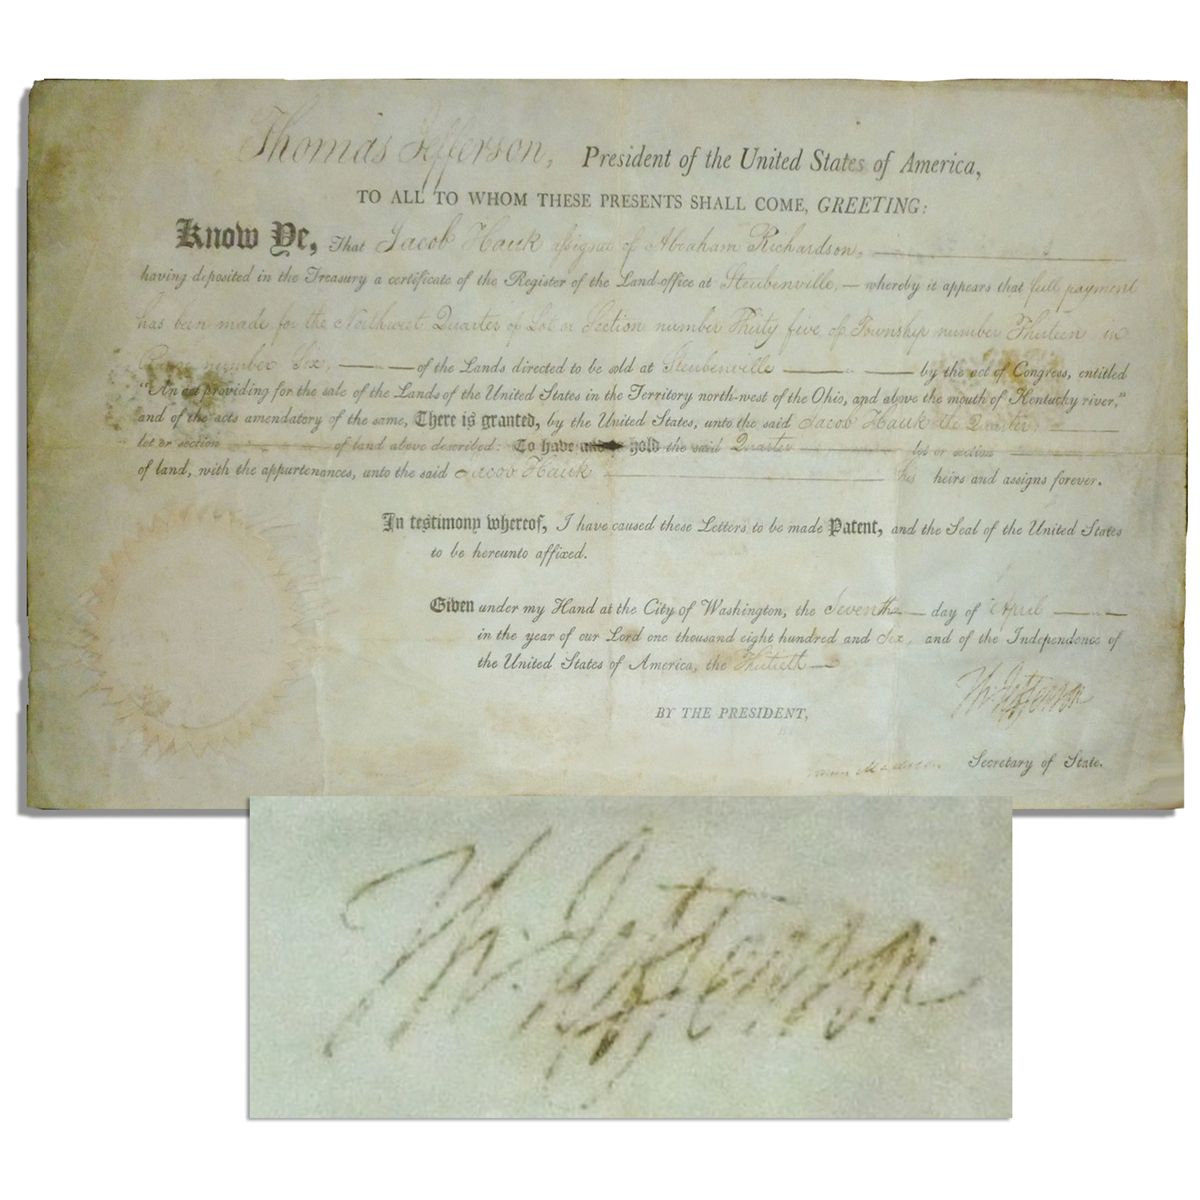 Thomas Jefferson, President of the United States of America,
TO ALL TO WHOM THESE PRESENTS SHALL COME, GREETING:
Know Ye, That Jacob Hauk assignee of Abraham Richardson,
having deposited in the Treasury a certificate of the Register of the Land-office at Steubenville, — whereby it appears that full payment
has been made for the Northwest Quarter of Lot or Section number Thirty five, of Township number Thirteen in
Range number Six, — of the Lands directed to be sold at Steubenville — by the act of Congress, entitled
"An act providing for the sale of the Lands of the United States in the Territory north-west of the Ohio, and above the mouth of Kentucky river,"
and of the acts amendatory of the same, There is granted, by the United States, unto the said Jacob Hauk the Quarter
lot or section of land above described: To have and to hold the said Quarter lot or section
of land, with the appurtenances, unto the said Jacob Hauk his heirs and assigns forever.
In testimony whereof, I have caused these Letters to be made Patent, and the Seal of the United States
to be hereunto affixed.
Given under my Hand at the City of Washington, the Seventh — day of April —
in the year of our Lord one thousand eight hundred and Six, and of the Independence of
the United States of America, the Thirtieth —
Th: Jefferson
BY THE PRESIDENT,
James Madison Secretary of State.
Th: Jefferson